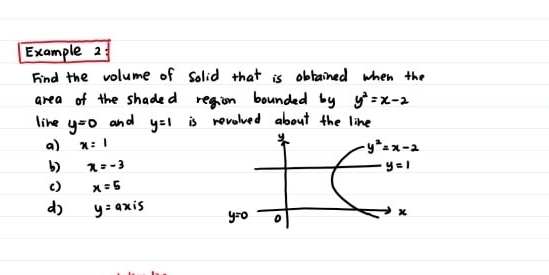 Example 2:
Find the volume of solid that is obtained when the
area of the shaded region bounded by y²=x-2
line y=0 and y=1 is revolved about the line
a) x=1
b) x=-3
c) x=5
d) y=axis
y
y²=x-2
y=1
y=0 0 x